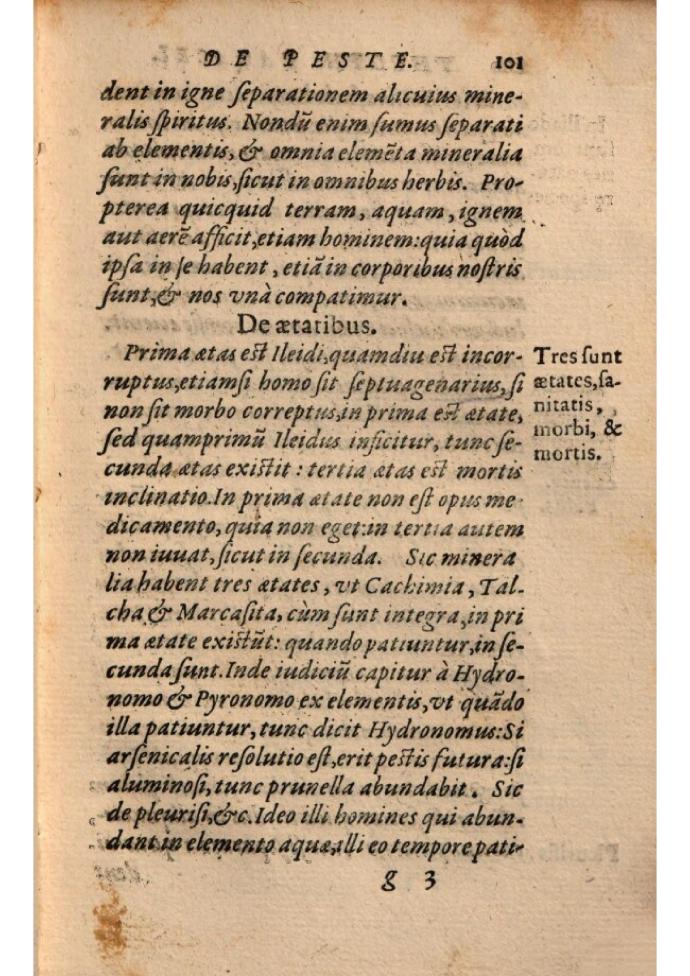 DE PESTE. 101
dent in igne ſeparationem alicuius mine-
ralis ſpiritus. Nondũ enim ſumus ſeparati
ab elementis, & omnia elemẽta mineralia
ſunt in nobis, ſicut in omnibus herbis. Pro-
pterea quicquid terram, aquam, ignem
aut aerẽ afficit, etiam hominem: quia quòd
ipſa in ſe habent, etiã in corporibus noſtris
ſunt, & nos vnà compatimur.
De ætatibus.
Prima ætas eſt Ileidi, quamdiu eſt incor-
ruptus, etiamſi homo ſit ſeptuagenarius, ſi
non ſit morbo correptus, in prima eſt ætate,
ſed quamprimũ Ileidus inficitur, tunc ſe-
cunda ætas exiſtit: tertia ætas eſt mortis
inclinatio. In prima ætate non eſt opus me
dicamento, quia non eget: in tertia autem
non iuuat, ſicut in ſecunda. Sic minera
lia habent tres ætates, vt Cachimia, Tal-
cha & Marcaſita, cùm ſunt integra, in pri
ma ætate exiſtũt: quando patiuntur, in ſe-
cunda ſunt. Inde iudiciũ capitur à Hydro-
nomo & Pyronomo ex elementis, vt quãdo
illa patiuntur, tunc dicit Hydronomus: Si
arſenicalis reſolutio eſt, erit peſtis futura: ſi
aluminoſi, tunc prunella abundabit. Sic
de pleuriſi, &c. Ideo illi homines qui abun-
dant in elemento aquæ, alli eo tempore pati-
g 3
Tres ſunt
ætates, ſa-
nitatis,
morbi, &
mortis.